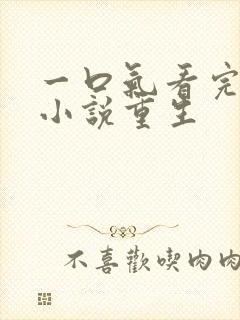 一口氣看完
小說重生
不喜歡喫肉肉